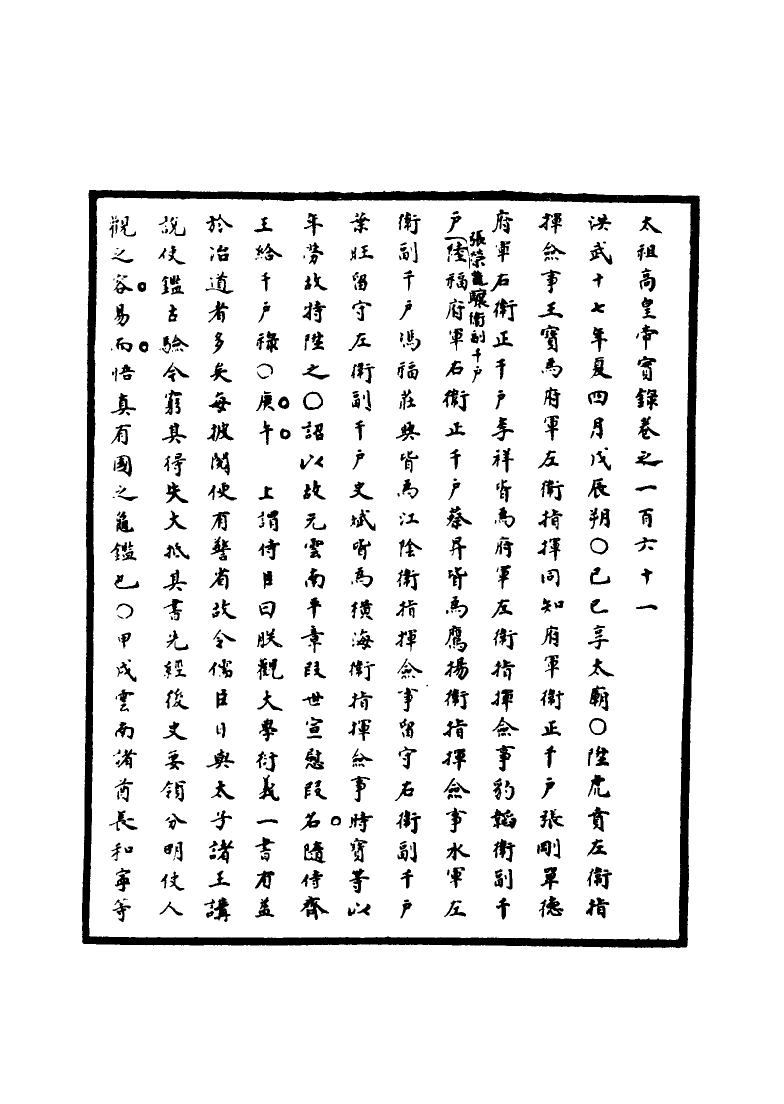 太祖高皇帝實錄卷之一百六十一
洪武十七年夏四月戊辰朔○己巳享太廟○陞虎賁左衛指
揮僉事王寶為府軍左衛指揮同知府軍衛正千戶張剛單德
府軍右衛正千戶李祥皆為府軍左衛指揮僉事豹韜衛副千
張榮龍驤衛副千戶
戶陸福府軍右衛正千戶蔡昇皆為鷹揚衛指揮僉事水軍左
衛副千戶馮福莊興皆為江陰衛指揮僉事留守右衛副千戶
葉旺留守左衛副千戶史斌皆為橫海衛指揮僉事時寶等以
年勞故特陞之○詔以故元雲南平章段世宣慰段名隨侍齊
王給千戶祿○庚午 上謂侍臣曰朕觀大學衍義一書有益
於治道者多矣每披閱便有警省故令儒臣日與太子諸王講
說使鑑古驗今窮其得失大抵其書先經後史要領分明使人
觀之容易而悟真有國之龜鑑也○甲戌雲南諸酋長和寧等